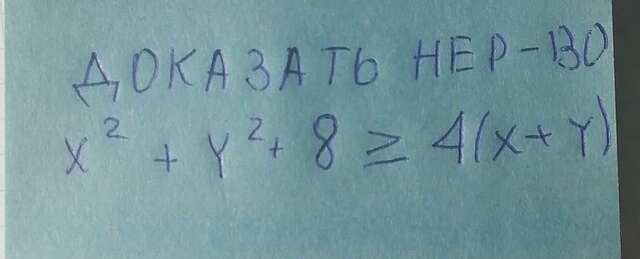 ДОКАЗАТЬ НЕР-ВО
X² + Y² + 8 ≥ 4(X + Y)